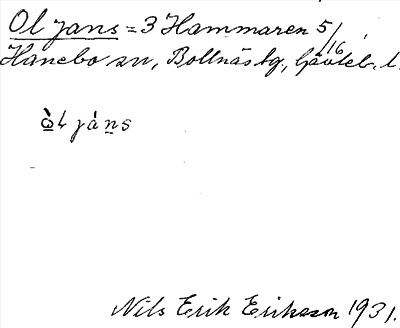 Ol jans = 3 Hammaren 5/16,
Hanebo sn, Bollnäs tg, Gävleb. l.
ò̲l já n̲s
Nils Erik Eriksson 1931.